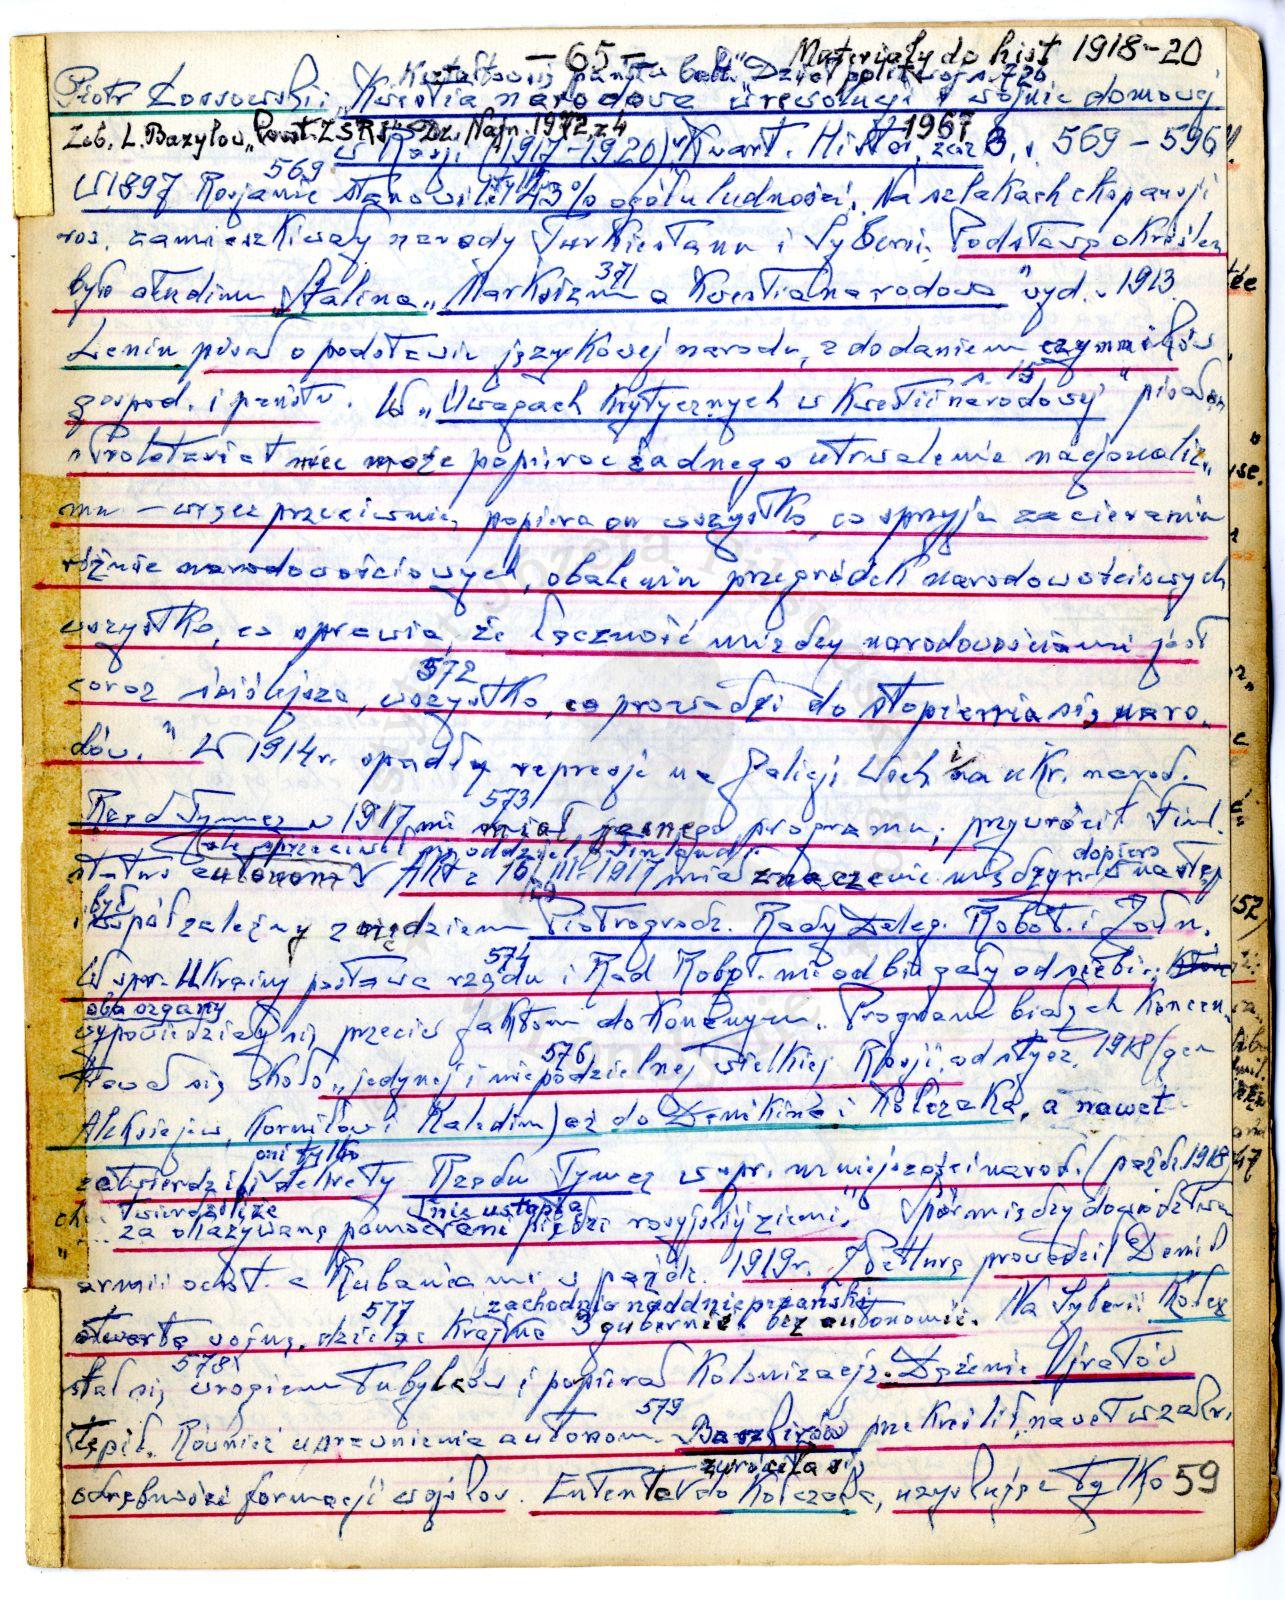 – 65 – Materiały do hist 1918–20
Kształtow. się państwa "Dzieł polit
Piotr Łossowski: „Kwestia narodowa w rewolucji i wojnie domowej
Zob. L. Bazylow „Powst. ZSRS" Dz. Najn. 1972, z 4 1967
w Rosji (1917–1920)" Kwart. Histor, zesz 3, s. 569–596
569 tylko
W 1897 Rosjanie stanowili 43% ogółu ludności. Na szlakach ekspansji
ros. zamieszkiwały narody Turkiestanu i Syberii. Podstawą określeń
371
było studium Stalina „Marksizm a kwestia narodowa" wyd. w 1913
Lenin pisał o podstawie językowej narodu, z dodaniem czynników
s. 15
gospod. i państw. W „Uwagach krytycznych w kwestii narodowej" pisał on
„Proletariat nie może popierać żadnego utrwalenia nacjonaliz„
mu – wręcz przeciwnie, popiera on wszystko, co sprzyja zacieraniu
różnic narodowościowych, obaleniu przegródek narodowościowych
wszystko, co sprawia, że łączność między narodowościami jest
572
coraz ściślejsza, wszystko, co prowadzi do stopienia się naro„
dów." W 1914 r. spadły represje na Galicji Wsch i na ukr. narod.
573
Rząd Tymcz w 1917 nie miał jasnego programu, przywrócił Finl.
(ale sprzeciwiał się oddziel. Finlandii)
status autonom. Akt z 16/III–1917 miał znaczenie międzyn. dopiero następ
129
i był współzależny z orędziem Piotrogrodz. Rady Deleg. Robot. i Żołn.
574
W spr. Ukrainy postawa rządu i Rad Robot. nie odbiegały od siebie,
oba organy
wypowiedziały się przeciw faktom dokonanym. Program białych koncen„
576
trował się około „jedynej i niepodzielnej wielkiej Rosji" od stycz. 1918 (gen
Aleksiejew, Korniłow i Kaledin) aż do Denikina i Kołczaka, a nawet
oni tylko
zatwierdzili dekrety Rządu Tymcz w spr. mniejszości narod. (paźdz. 1918)
twierdzili że nie ustąpią
za okazywaną pomoc ani piędzi rosyjskiej ziemi. Spór między dowództwem
armii ochot. a Kubaniami w paźdz. 1919 r. Z Petlurą prowadził Denik
577 zachodnio naddnieprzańskie
otwartą wojnę, dzieląc kraj na 3 gubernie bez autonomii. Na Syberii Kołcz
578
stał się wrogiem tubylców i popierał kolonizację. Dążenie
579
tępił. Również uprawnienia autonom. Baszkirów przekreślił, nawet w zakr.
zwróciła się
odrębności formacji wojskow. Ententa do Kołczaka, uzyskując tylko 59